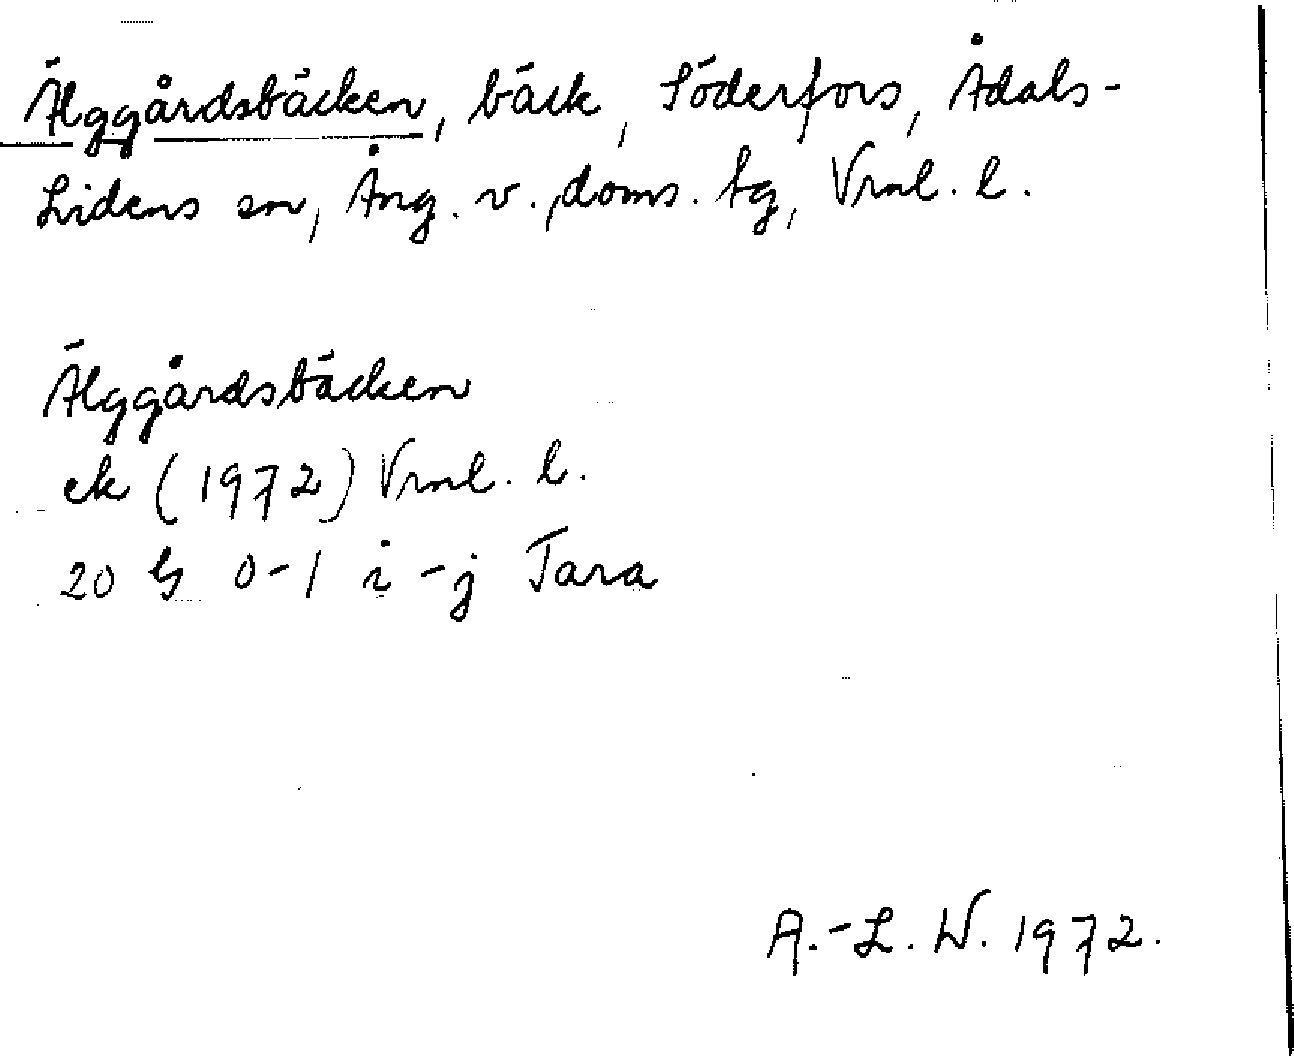 Älggårdsbäcken, bäck, Söderfors, Ådals-
Lidens sn, Ång. v., doms. tg, Vrnl. l.
Älggårdsbäcken
ek (1972) Vrnl. l.
20 G 0-1 i-j Tara
A.-L. W. 1972.